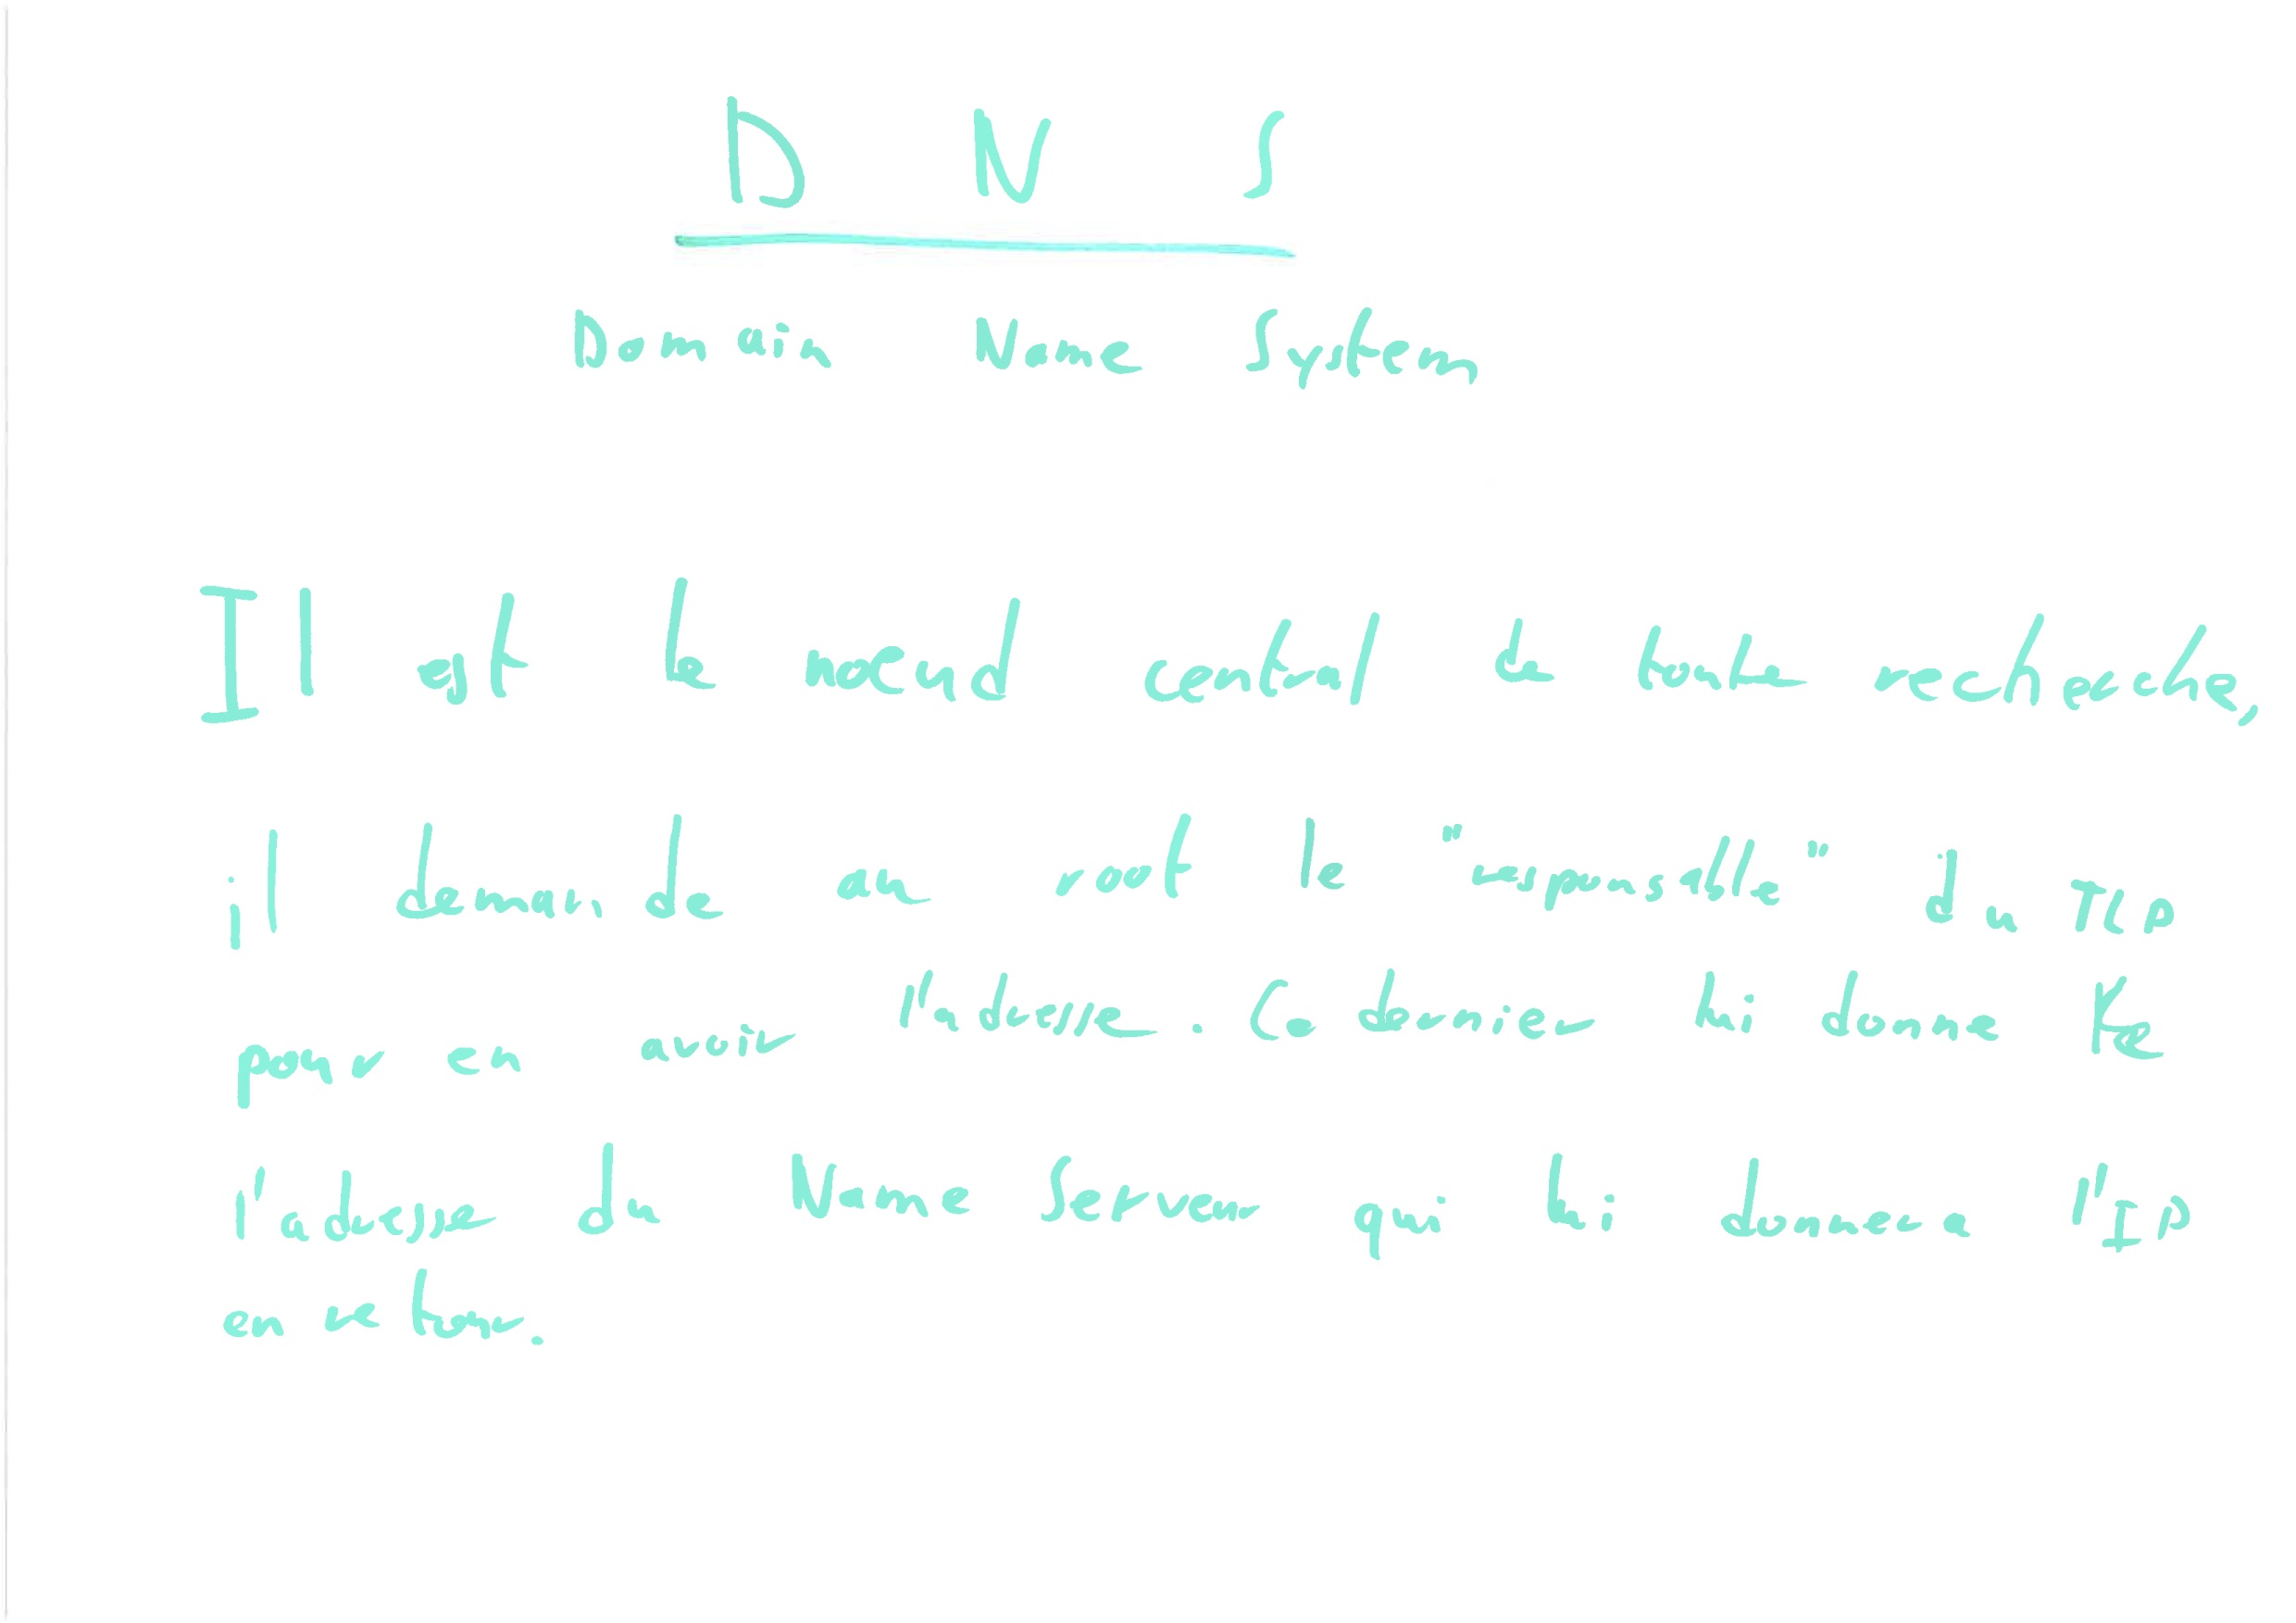 D N S
Domain Name System
Il est le noeud central de toute recherche,
il demande au root le "responsable" du TLD
pour en avoir l'adresse. Ce dernier lui donne
l'adresse du Name Server qui lui donnera l'IP
en retour.